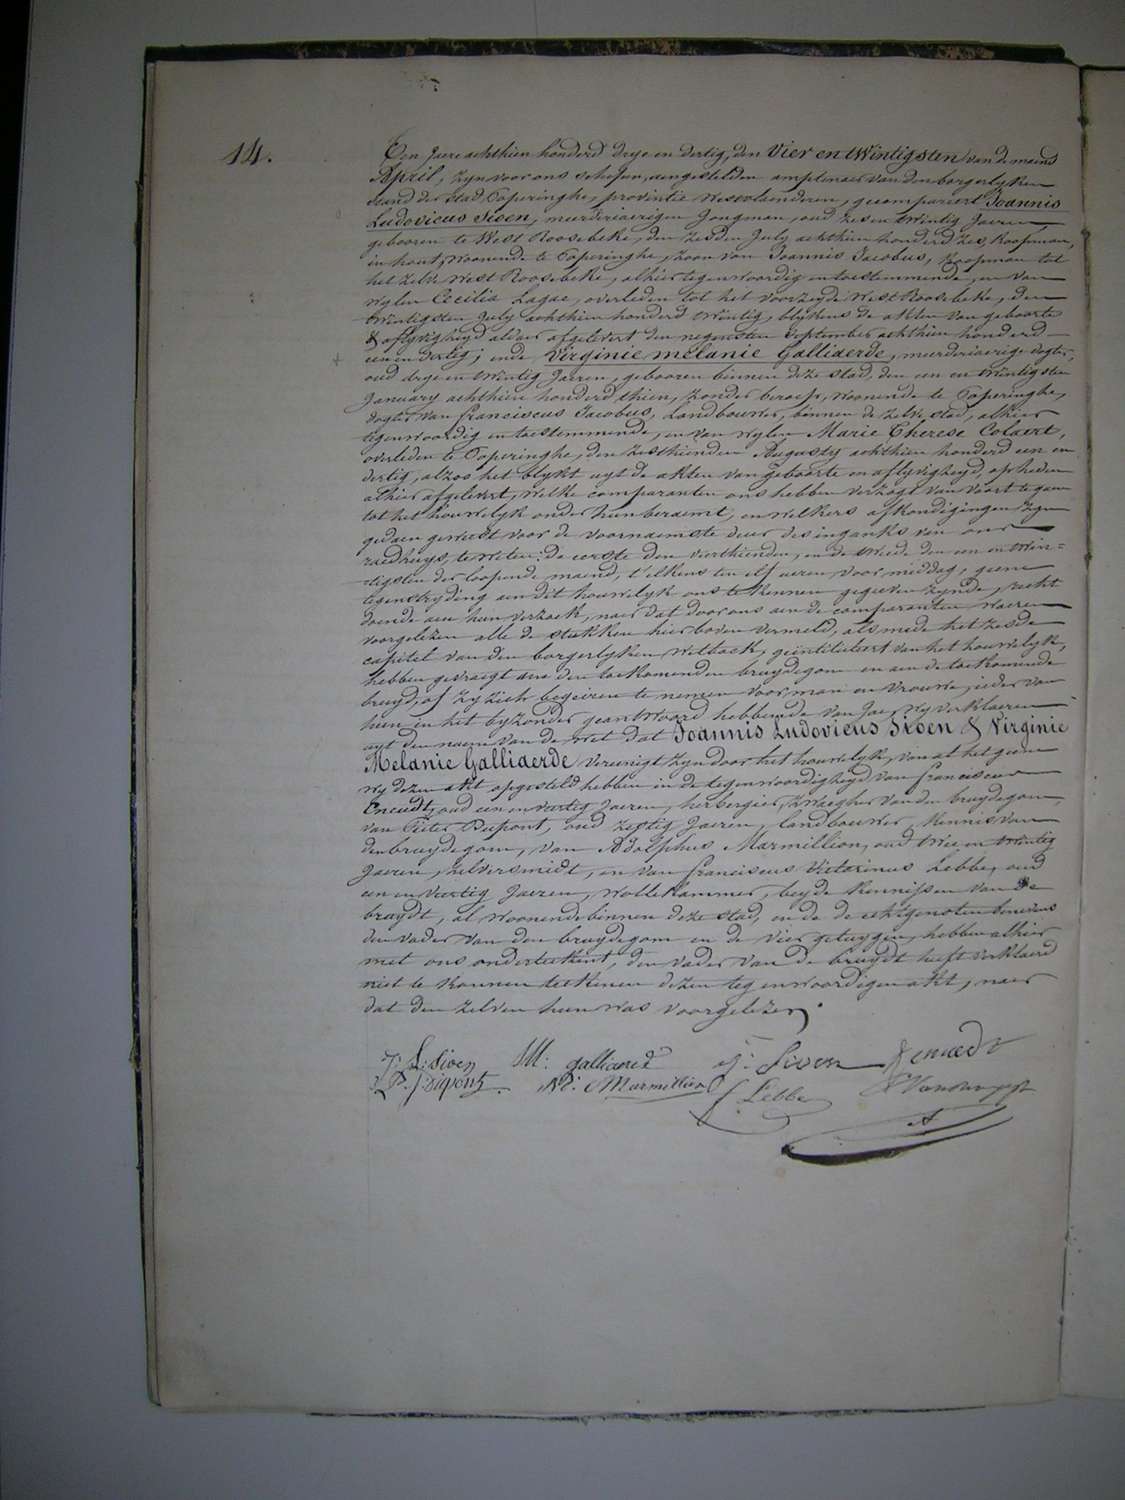 14.
Een Jaere achthien honderd drye en dertig, den vier en twintigsten van de maend
April, zyn voor ons schepen, aengestelden amptenaer van den borgerlyken
stand der stad Poperinghe, provintie Westvlaenderen, gecompareert Joannis
Ludovicus Sioen, meerderjaerigen Jongman, oud zes en twintig Jaeren
gebooren te West Roosebeke, den zesden July achthien honderd zes, koopman,
in hout, woonende te Poperinghe, zoon van Joannis Jacobus, koopman tot
het zelve West Roosebeke, alhier tegenwoordig en toestemmende, en van
wylen Cecilia Lagae, overleden tot het voorzeyde West Roosebeke, den
twintigsten July achthien honderd twintig, blykens de akten van geboorte
& aflyvigheyd aldaer afgelevert den negensten September achthien honderd
een en dertig; ende Virginie melanie Galliaerde, meerderjaerige dogter,
oud drye en twintig Jaeren, gebooren binnen deze stad, den een en twintigsten
January achthien honderd thien, zonder beroep, woonende te Poperinghe,
dogter van franciscus Jacobus, Landbouwer, binnen de zelve stad, alhier
tegenwoordig en toestemmende, en van wylen Marie Therese Colaert,
overleden te Poperinghe, den zesthienden Augusty achthien honderd een en
dertig, alzoo het blykt uyt de akten van geboorte en aflyvigheyd, op heden
alhier afgelevert, welke comparanten ons hebben verzogt van voort te gaen
tot het houwelyk onder hun beraemt, en welkers afkondigingen zyn
gedaen geweest voor de voornaemste deur des inganks van ons
raedhuys, te weten: de eerste den vierthienden, en de tweede den een en twin=
tigsten der loopende maend, t'elkens ten elf ueren voor middag, geene
tegenstryding aen dit houwelyk ons te kennen gegeeven zynde, recht
doende aen hun verzoek, naer dat door ons aen de comparanten waeren
voorgelezen alle de stukken hier boven vermeld, als mede het zesde
capitel van den borgerlyken wetboek, geintituleert van het houwelyk,
hebben gevraegt aen den toekomenden bruydegom en aen de toekomende
bruyd, of zy zich begeiren te nemen voor man en vrouwe, ieder van
hun in het byzonder geantwoord hebbende van Jae, wy verklaeren
uyt den naem van de wet dat Joannis Ludovicus Sioen & Virginie
Melanie Galliaerde vereenigt zyn door het houwelyk, van al het geene
wy dezen akt opgesteld hebben in de tegenwoordigheyd van franciscus
oud een en veertig Jaeren, herbergier, zwaegher van den bruydegom,
van Pieter Dupont, oud zestig Jaeren, Landbouwer, kennis van
den bruydegom, van Adolphus Marmillion, oud twee en twintig
Jaeren, zilversmidt, en van franciscus Victorinus Lebbe, oud
een en veertig Jaeren, wollekammer, beyde kennissen van de
bruydt, al woonende binnen deze stad, en de de echtgenoten benevens
den vader van den bruydegom en de vier getuygen, hebben alhier
met ons onderteekent, den vader van de bruydt heeft verklaerd
niet te konnen teekenen dezen tegenwoordigen akt, naer
dat den zelven hun was voorgelezen.
J: L: Sioen M: galliaerde J: Sioen
Ad: Marmillion Lebbe